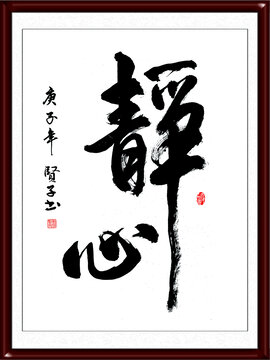 靜心
庚子年 賢子书